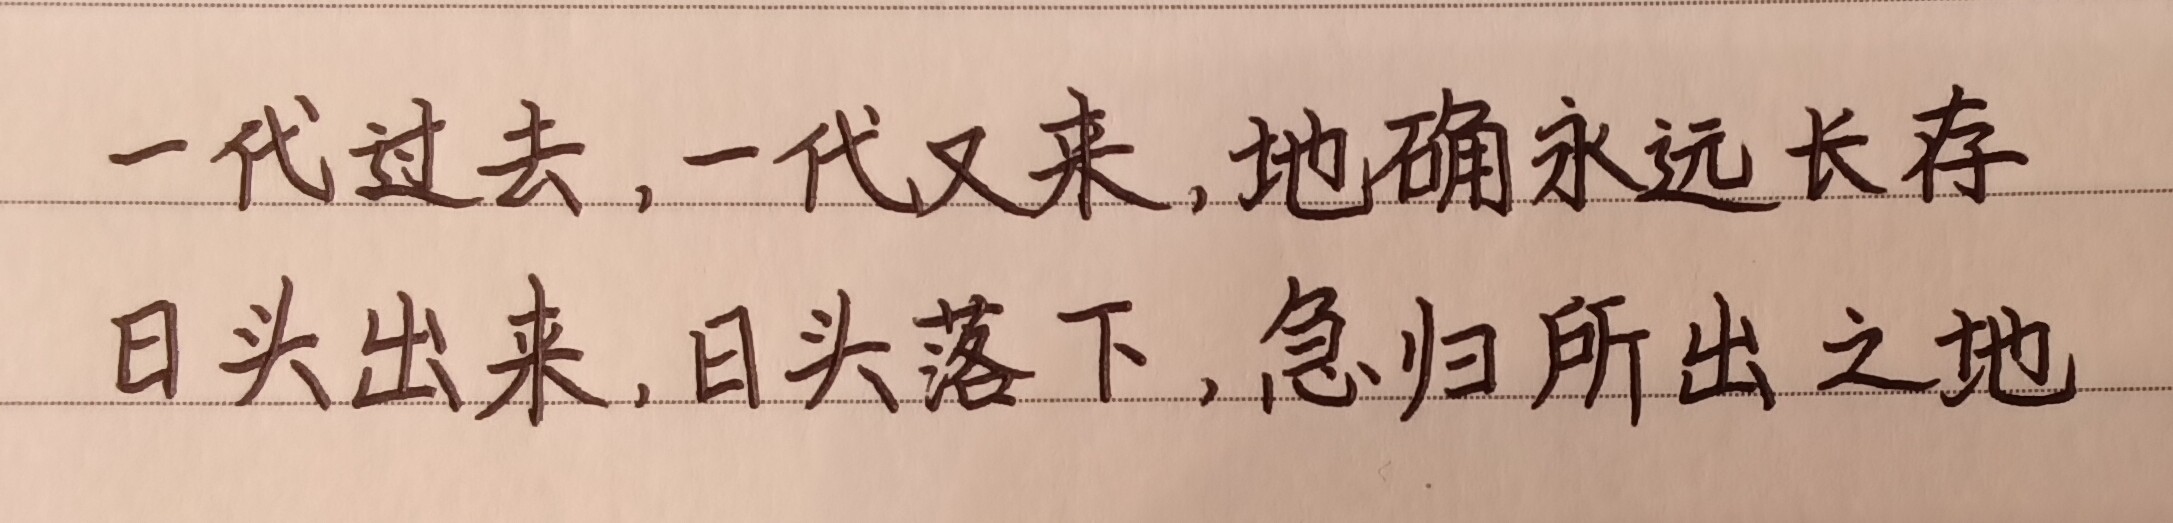 一代过去,一代又来,地确永远长存
日头出来,日头落下,急归所出之地